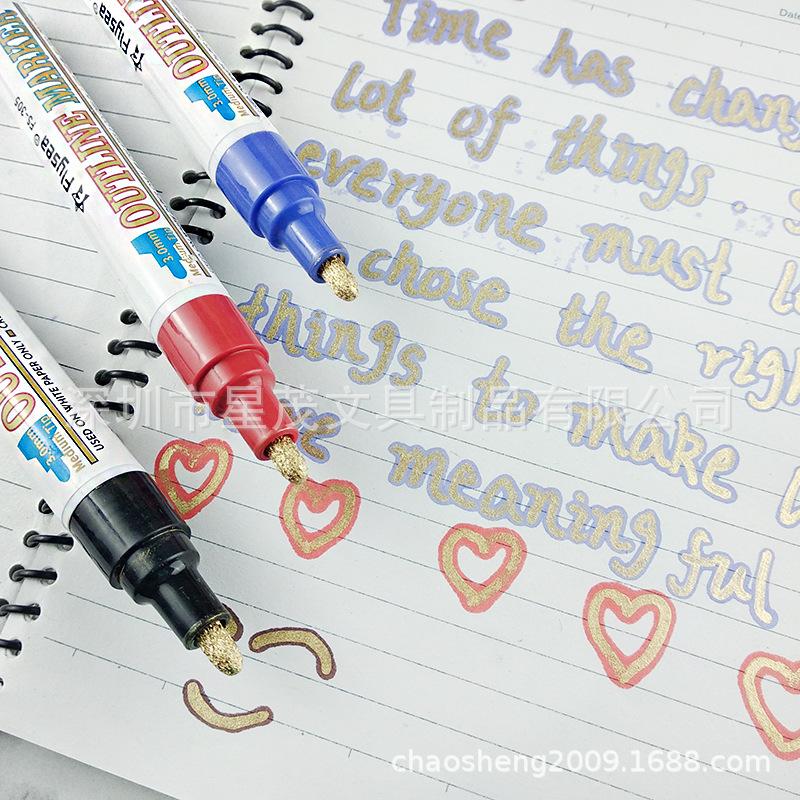 Date
Time has chang
lot of things.
everyone must
chose the righ
things to make
meaningful
Flysea® OUTLINE
3.0mm
Medium Tip
OUTLINE MARKER
Flysea® FS-305
3.0mm
Medium Tip
USED ON WHITE PAPER ONLY
3.0mm
Medium Tip
深圳市星茂文具制品有限公司
chaosheng2009.1688.com